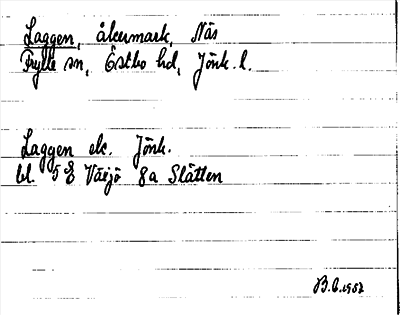 Laggen, åkermark, Näs
Fryele sn, Östbo hd, Jönk. l.
Laggen ek. Jönk.
bl. 5 E Växjö 8a Slätten
B.E. 1957